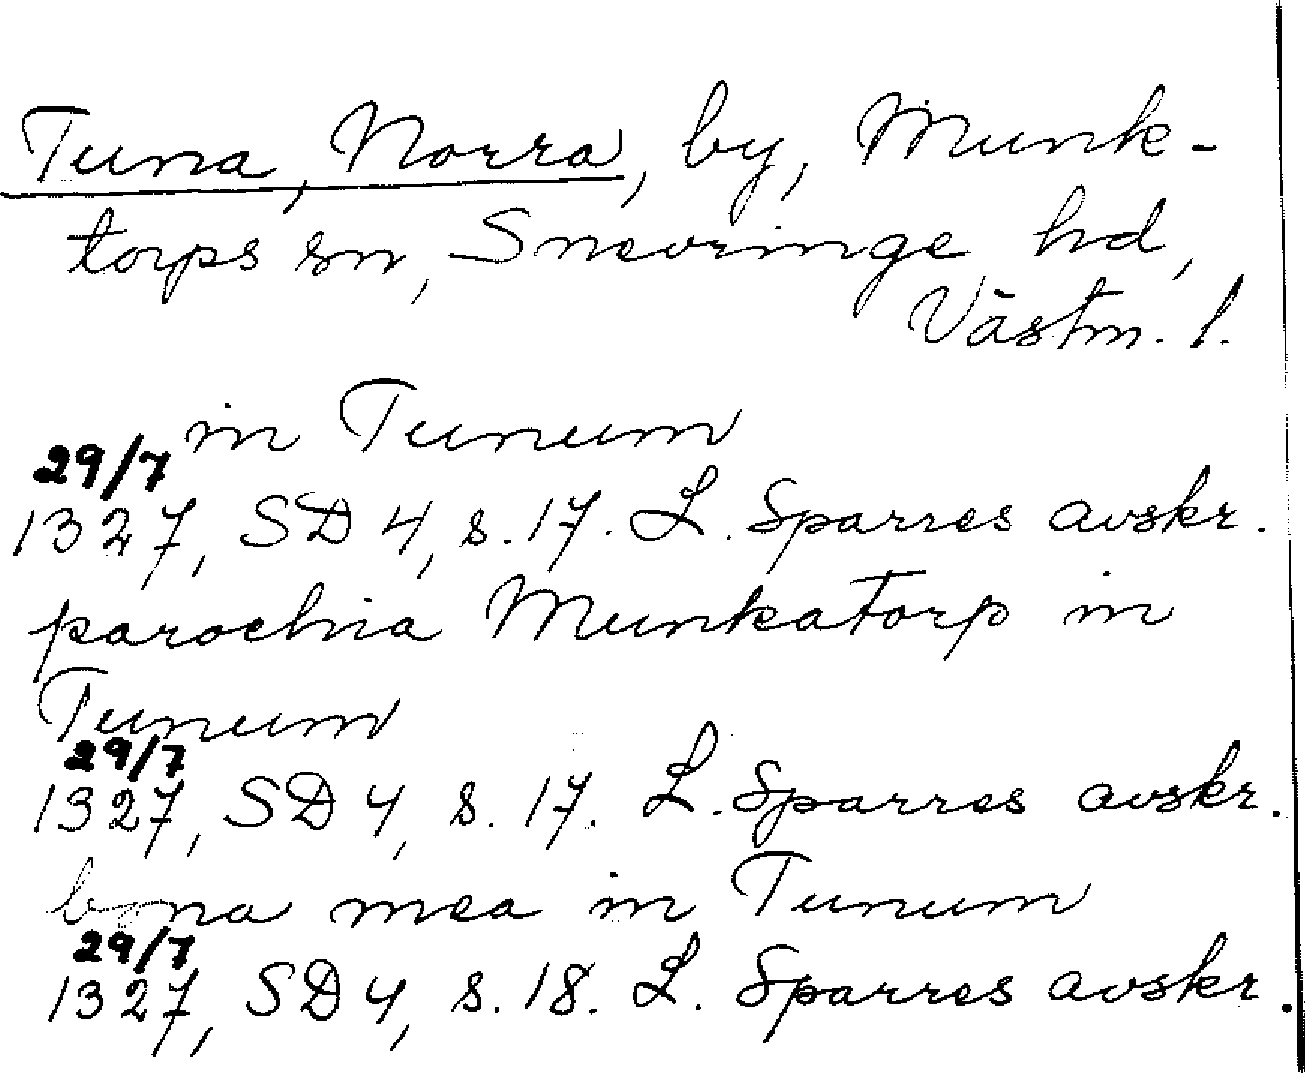 Tuna, Norra, by, Munk-
torps sn, Snevringe hd,
Västm. l.
in Tunum
29/7
1327, SD 4, s. 17. L. Sparres avskr.
parochia Munkatorp in
Tunum
29/7
1327, SD 4, s. 17. L. Sparres avskr.
bona mea in Tunum
29/7
1327, SD 4, s. 18. L. Sparres avskr.